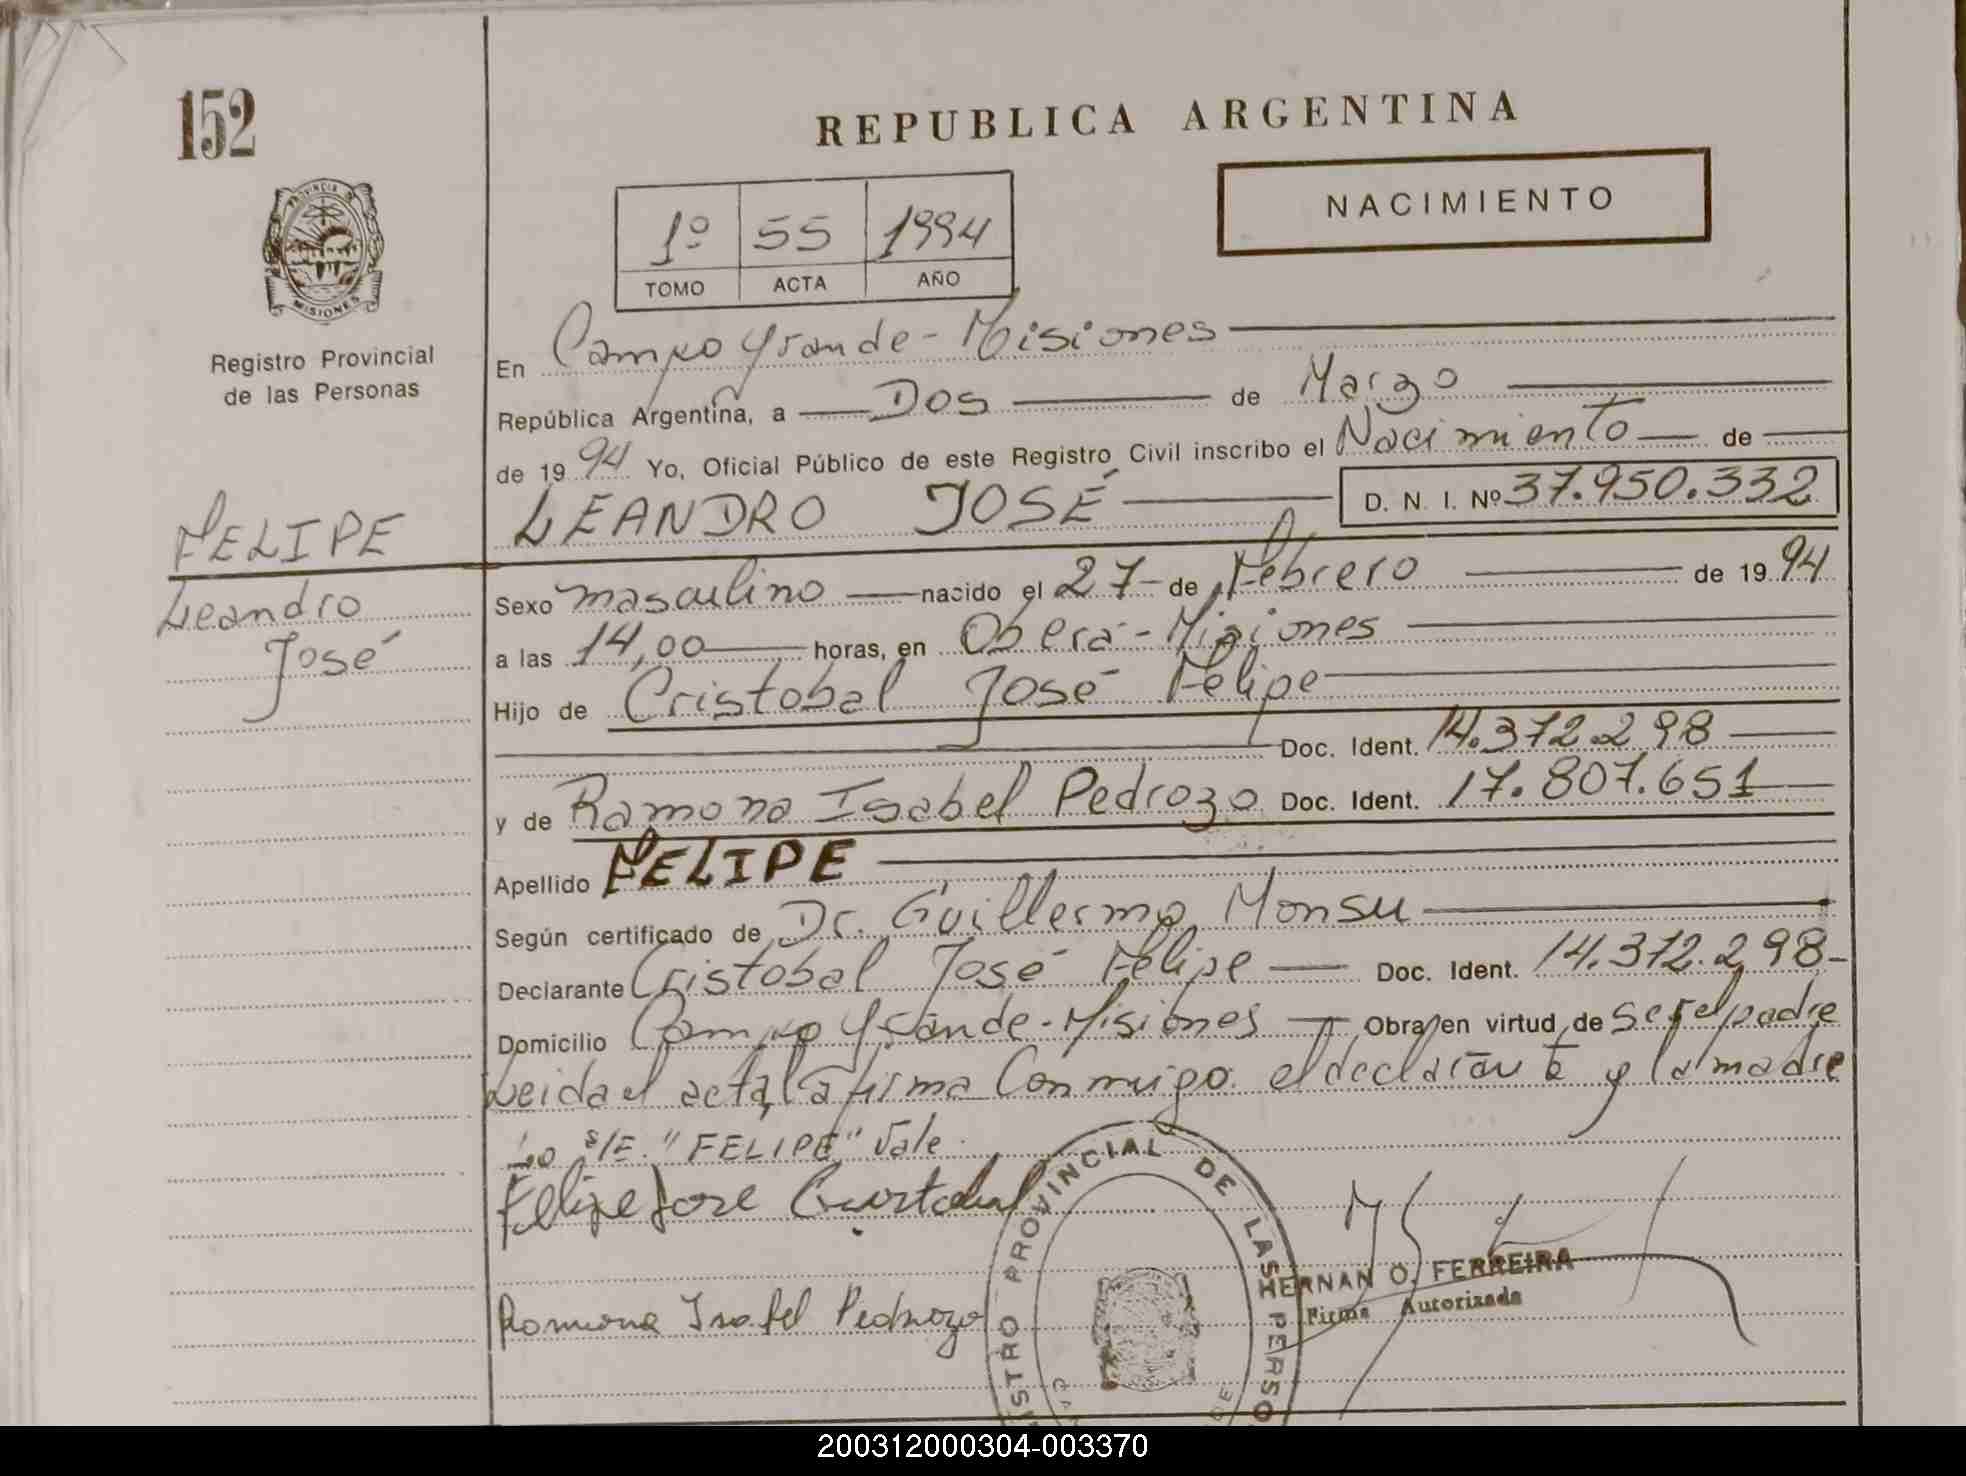 152
REPUBLICA ARGENTINA
NACIMIENTO
1º 55 1994
TOMO ACTA AÑO
PROVINCIA DE
MISIONES
Registro Provincial
de las Personas
En Campo Grande - Misiones
República Argentina, a Dos de Marzo
de 19 94 Yo, Oficial Público de este Registro Civil inscribo el Nacimiento de
LEANDRO JOSÉ D. N. I. Nº 37.950.332
FELIPE
Leandro
José
Sexo masculino nacido el 27 de Febrero de 19 94
a las 14,00 horas, en Oberá - Misiones
Hijo de Cristobal José Felipe
Doc. Ident. 14.372.298
y de Ramona Isabel Pedrozo Doc. Ident. 17.807.651
Apellido FELIPE
Según certificado de Dr. Guillermo Monsu
Declarante Cristobal José Felipe Doc. Ident. 14.372.298
Domicilio Campo Grande - Misiones Obra en virtud de ser el padre
Leida el acta, la firma conmigo el declarante y la madre
Lo s/E. "FELIPE" Vale.
Felipe Jose Cristobal
Ramona Isabel Pedrozo
STRO PROVINCIAL DE LAS PERSO
HERNAN O. FERREIRA
Firma Autorizada
200312000304-003370